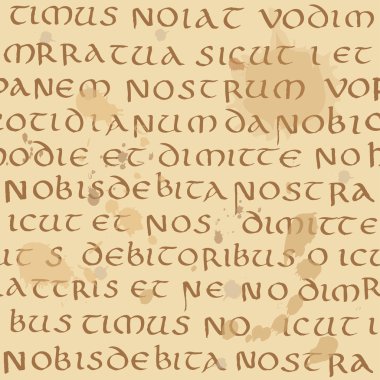 TIMUS NOIAT VODIM
MRRATUA SICUT I ET
PANEM NOSTRUM VOP
OTIDIANUM DANOBIO
HODIE ET DIMITTE NO H
NOBISDEBITA NOSTRA
ICUT ET NOS DIMITTE
UT S DEBITORIBUS O ICU
ATTRIS ET NE NO DIMR
BUS TIMUS NO ICUT I
NOBISDEBITA NOSTRA